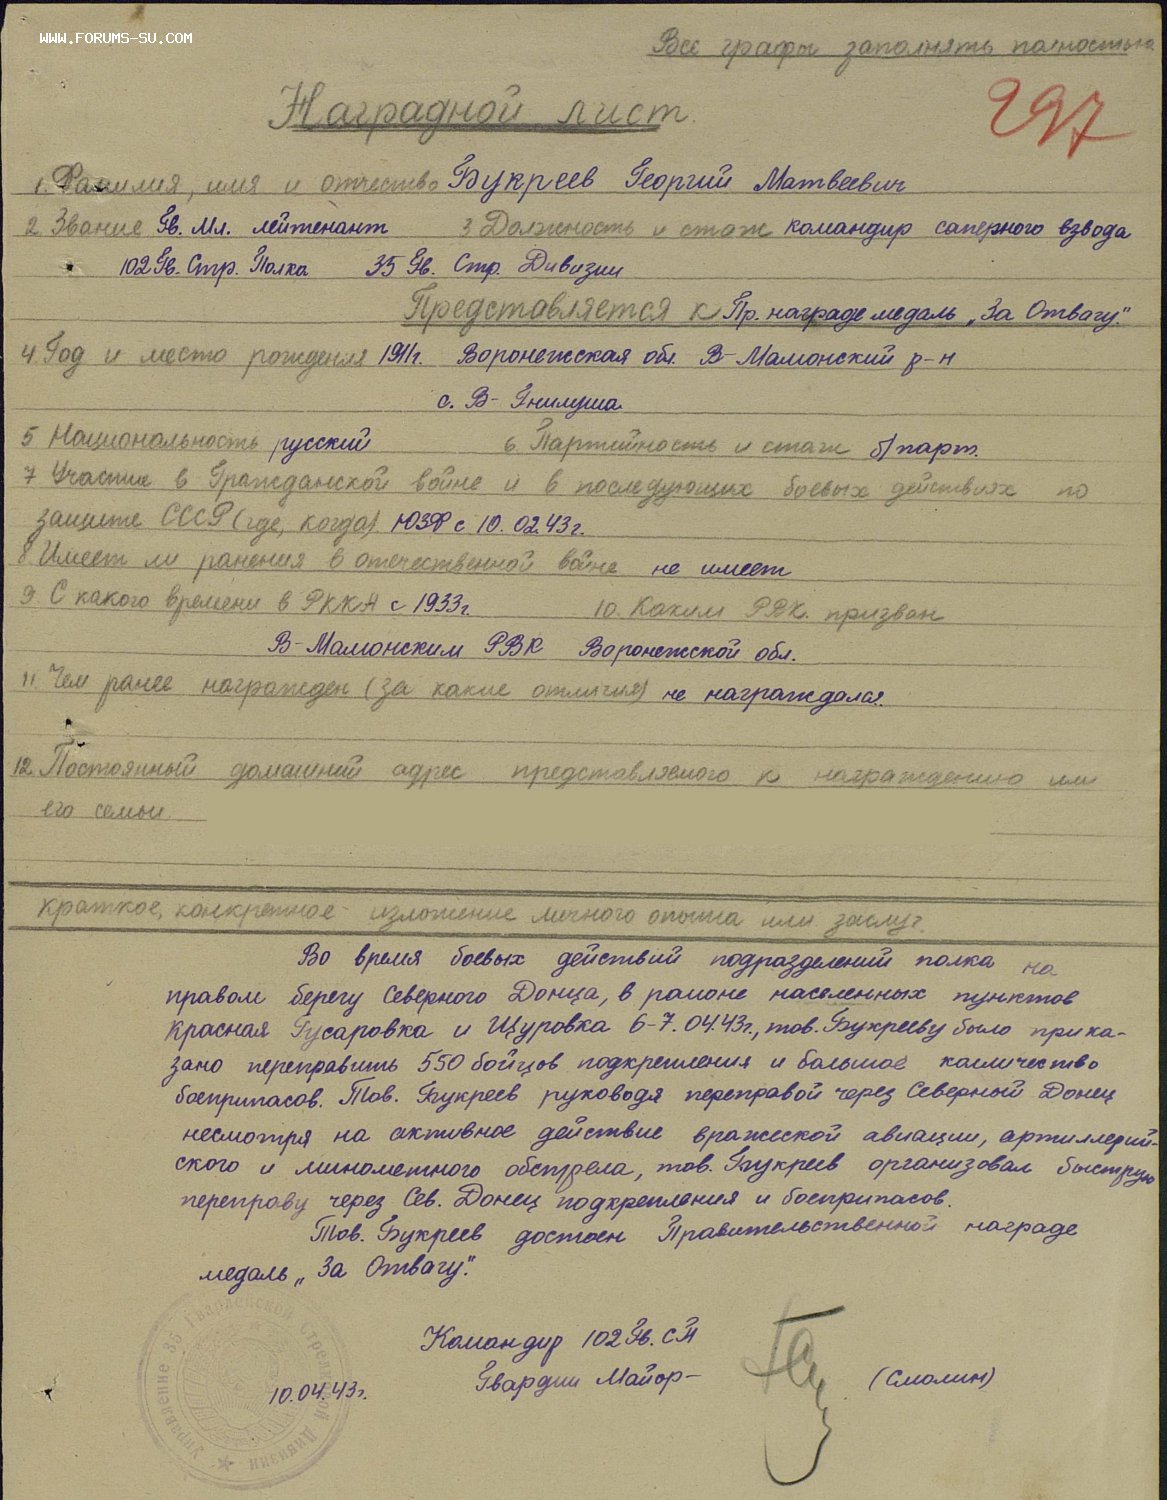 WWW.FORUMS-SU.COM
Все графы заполнять полностью
297
Наградной лист.
1. Фамилия, имя и отчество Букреев Георгий Матвеевич
2 Звание Гв. Мл. лейтенант 3 Должность и стаж командир саперного взвода
102 Гв. Стр. Полка 35 Гв. Стр. Дивизии
Представляется к Пр. награде медаль „За Отвагу".
4. Год и место рождения 1911г. Воронежская обл. В-Мамонский р-н
с. В- Гнилуша
5 Национальность русский 6 Партийность и стаж б/парт.
7 Участие в Гражданской войне и в последующих боевых действиях по
защите СССР (где, когда) ЮЗФ с 10.02.43г.
8. Имеет ли ранения в отечественной войне не имеет
9. С какого времени в РККА с 1933г. 10. Каким РВК. призван
В-Мамонским РВК Воронежской обл.
11. Чем ранее награжден (за какие отличия) не награждался.
12. Постоянный домашний адрес представляемого к награждению или
его семьи.
Краткое, конкретное изложение личного опыта или заслуг.
Во время боевых действий подразделений полка на
правом берегу Северного Донца, в районе населенных пунктов
Красная Гусаровка и Щуровка 6-7.04.43г., тов. Букрееву было прика-
зано переправить 550 бойцов подкрепления и большое количество
боеприпасов. Тов. Букреев руководя переправой через Северный Донец
несмотря на активное действие вражеской авиации, артиллерий-
ского и минометного обстрела, тов. Букреев организовал быструю
переправу через Сев. Донец подкрепления и боеприпасов.
Тов. Букреев достоен Правительственной награде
медаль „За Отвагу".
Командир 102 Гв. СП
Гвардии Майор- (Смолин)
10.04.43г.
Управление 35 Гвардейской Стрелковой Дивизии